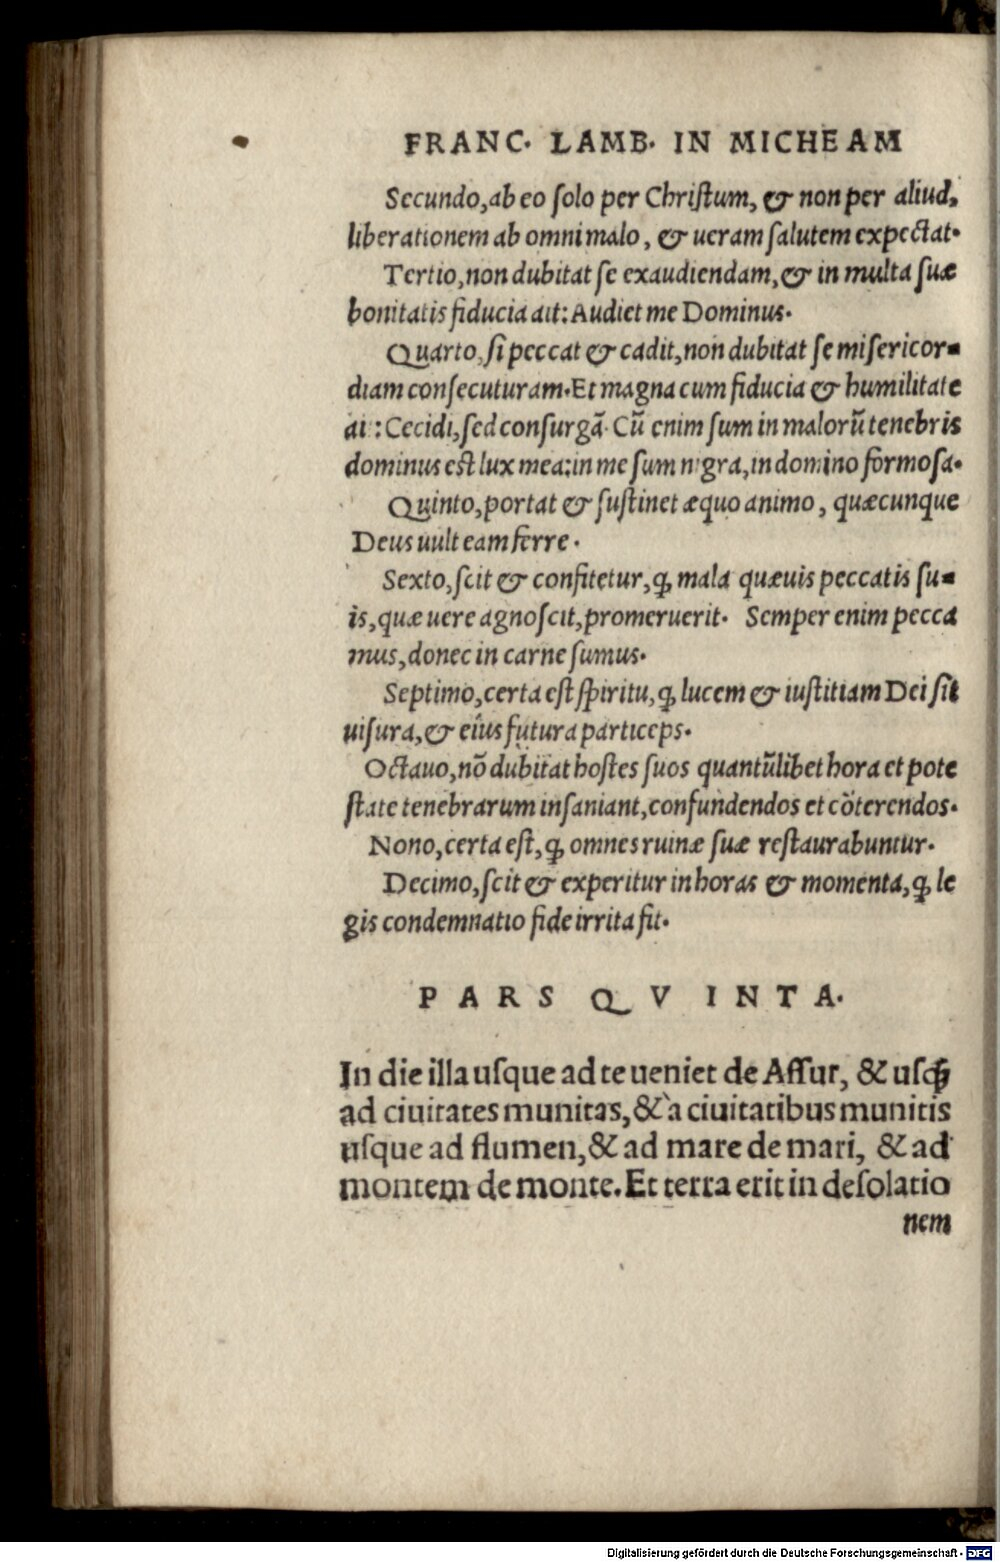 FRANC. LAMB. IN MICHEAM
Secundo, ab eo ſolo per Chriſtum, & non per aliud,
liberationem ab omni malo, & ueram ſalutem expectat.
Tertio, non dubitat ſe exaudiendam, & in multa ſuæ
bonitatis fiducia ait: Audiet me Dominus.
Quarto, ſi peccat & cadit, non dubitat ſe miſericor-
diam conſecuturam. Et magna cum fiducia & humilitate
ai : Cecidi, ſed conſurgã. Cũ enim ſum in malorũ tenebris
dominus eſt lux mea: in me ſum nigra, in domino formoſa.
Quinto, portat & ſuſtinet æquo animo, quæcunque
Deus uult eam ferre.
Sexto, ſcit & confitetur, ꝙ mala quæuis peccatis ſu-
is, quæ uere agnoſcit, promeruerit. Semper enim pecca
mus, donec in carne ſumus.
Septimo, certa eſt ſpiritu, ꝙ lucem & iuſtitiam Dei ſit
uiſura, & eius futura particeps.
Octauo, nõ dubitat hoſtes ſuos quantũlibet hora et pote
ſtate tenebrarum inſaniant, confundendos et cõterendos.
Nono, certa eſt, ꝙ omnes ruinæ ſuæ reſtaurabuntur.
Decimo, ſcit & experitur in horas & momenta, ꝙ le
gis condemnatio fide irrita fit.
PARS QVINTA.
In die illa uſque ad te ueniet de Aſſur, & uſqꝫ
ad ciuitates munitas, & a ciuitatibus munitis
uſque ad flumen, & ad mare de mari, & ad
montem de monte. Et terra erit in deſolatio
nem
Digitalisierung gefördert durch die Deutsche Forschungsgemeinschaft - DFG